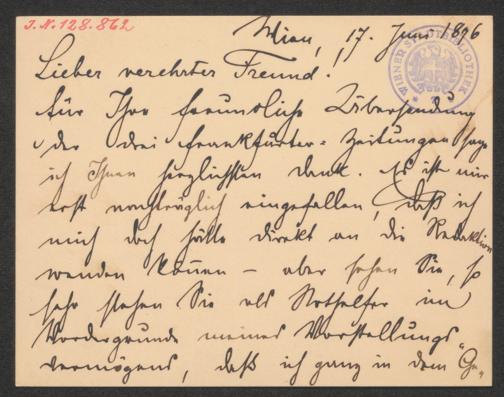 J.N. 128.862
Wien, 17. Juni 1896
WIENER STADTBIBLIOTHEK
Lieber verehrter Freund!
Für Ihre freundliche Übersendung
der drei Frankfurter-Zeitungen sage
ich Ihnen herzlichsten Dank. Es ist mir
erst nachträglich eingefallen, daß ich
mich doch hätte direkt an die Redaktion
wenden können – aber sehen Sie, so
sehr stehen Sie als Nothelfer im
Vordergrunde meines Vorstellungs-
vermögens, daß ich ganz in dem Ge-